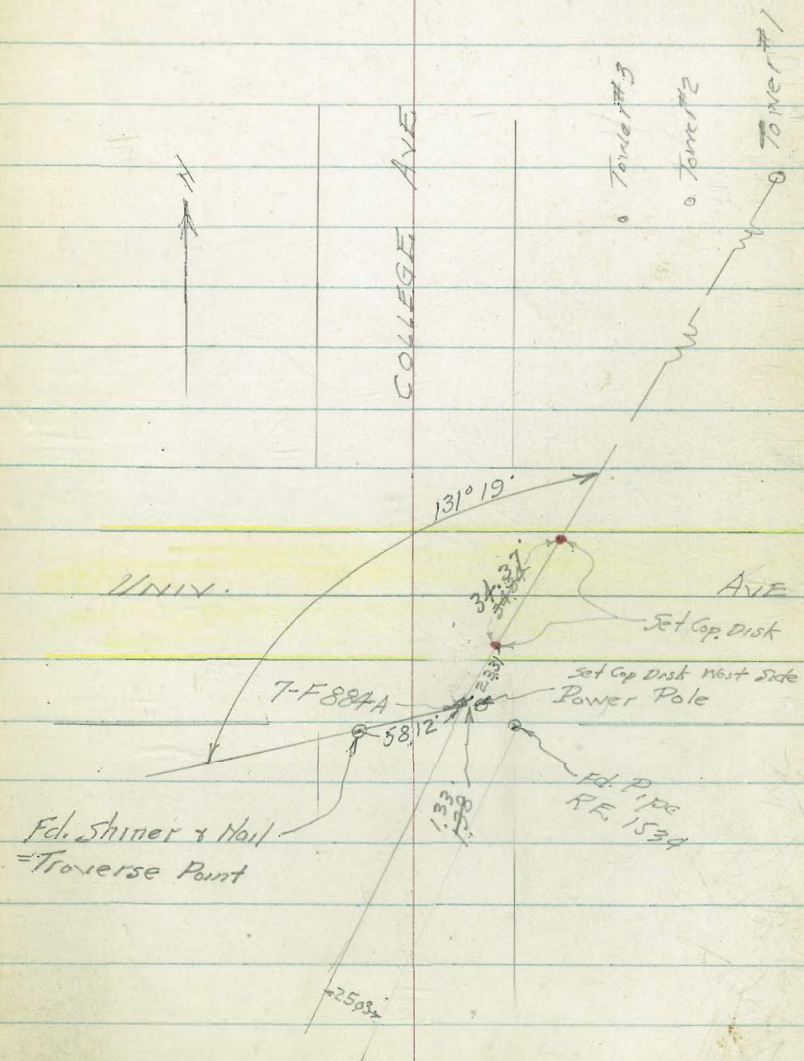 N
COLLEGE AVE
Tower #3
Tower #2
Tower #1
131° 19'
34.37
UNIV. AVE
Set Cop. Disk
23.31
Set Cop Disk West Side
Power Pole
7-F884A
58.12'
1.33'
1.38
Fd. Pipe
R.E. 1534
Fd. Shiner & Nail
=Traverse Point
25.03